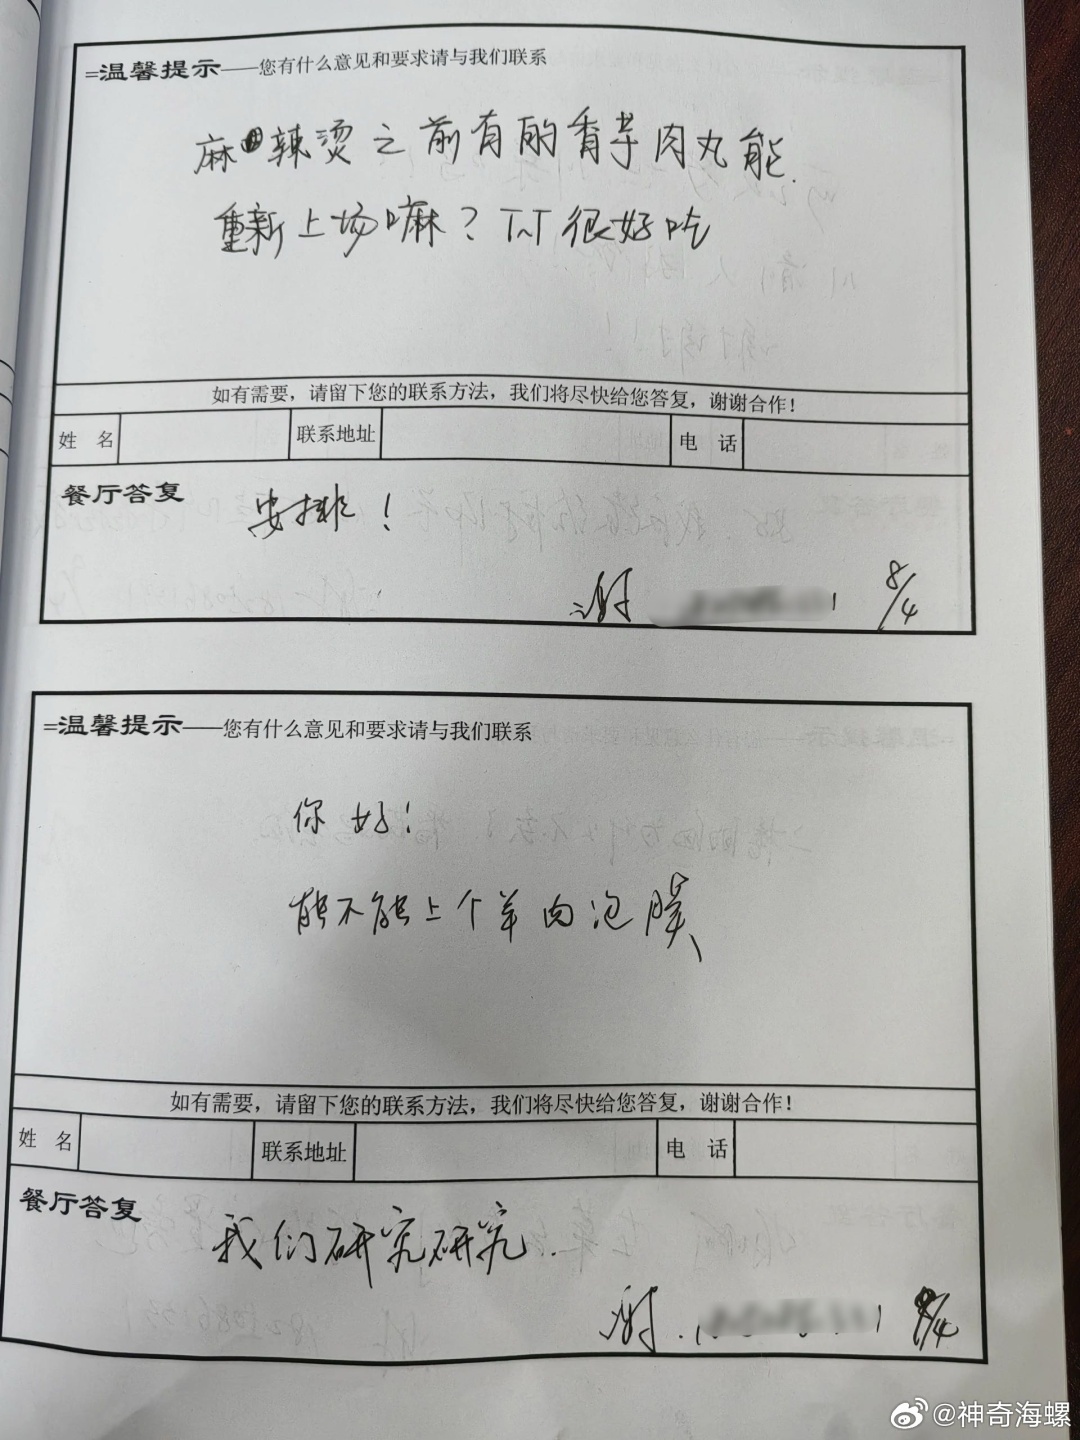 =温馨提示——您有什么意见和要求请与我们联系
麻辣烫之前有的香芋肉丸能
重新上场嘛？TnT 很好吃
如有需要，请留下您的联系方法，我们将尽快给您答复，谢谢合作！
姓 名 联系地址 电 话
餐厅答复 安排！
谢 8/4
=温馨提示——您有什么意见和要求请与我们联系
你好！
能不能上个羊肉泡膜
如有需要，请留下您的联系方法，我们将尽快给您答复，谢谢合作！
姓 名 联系地址 电 话
餐厅答复 我们研究研究.
谢 8/4
@神奇海螺